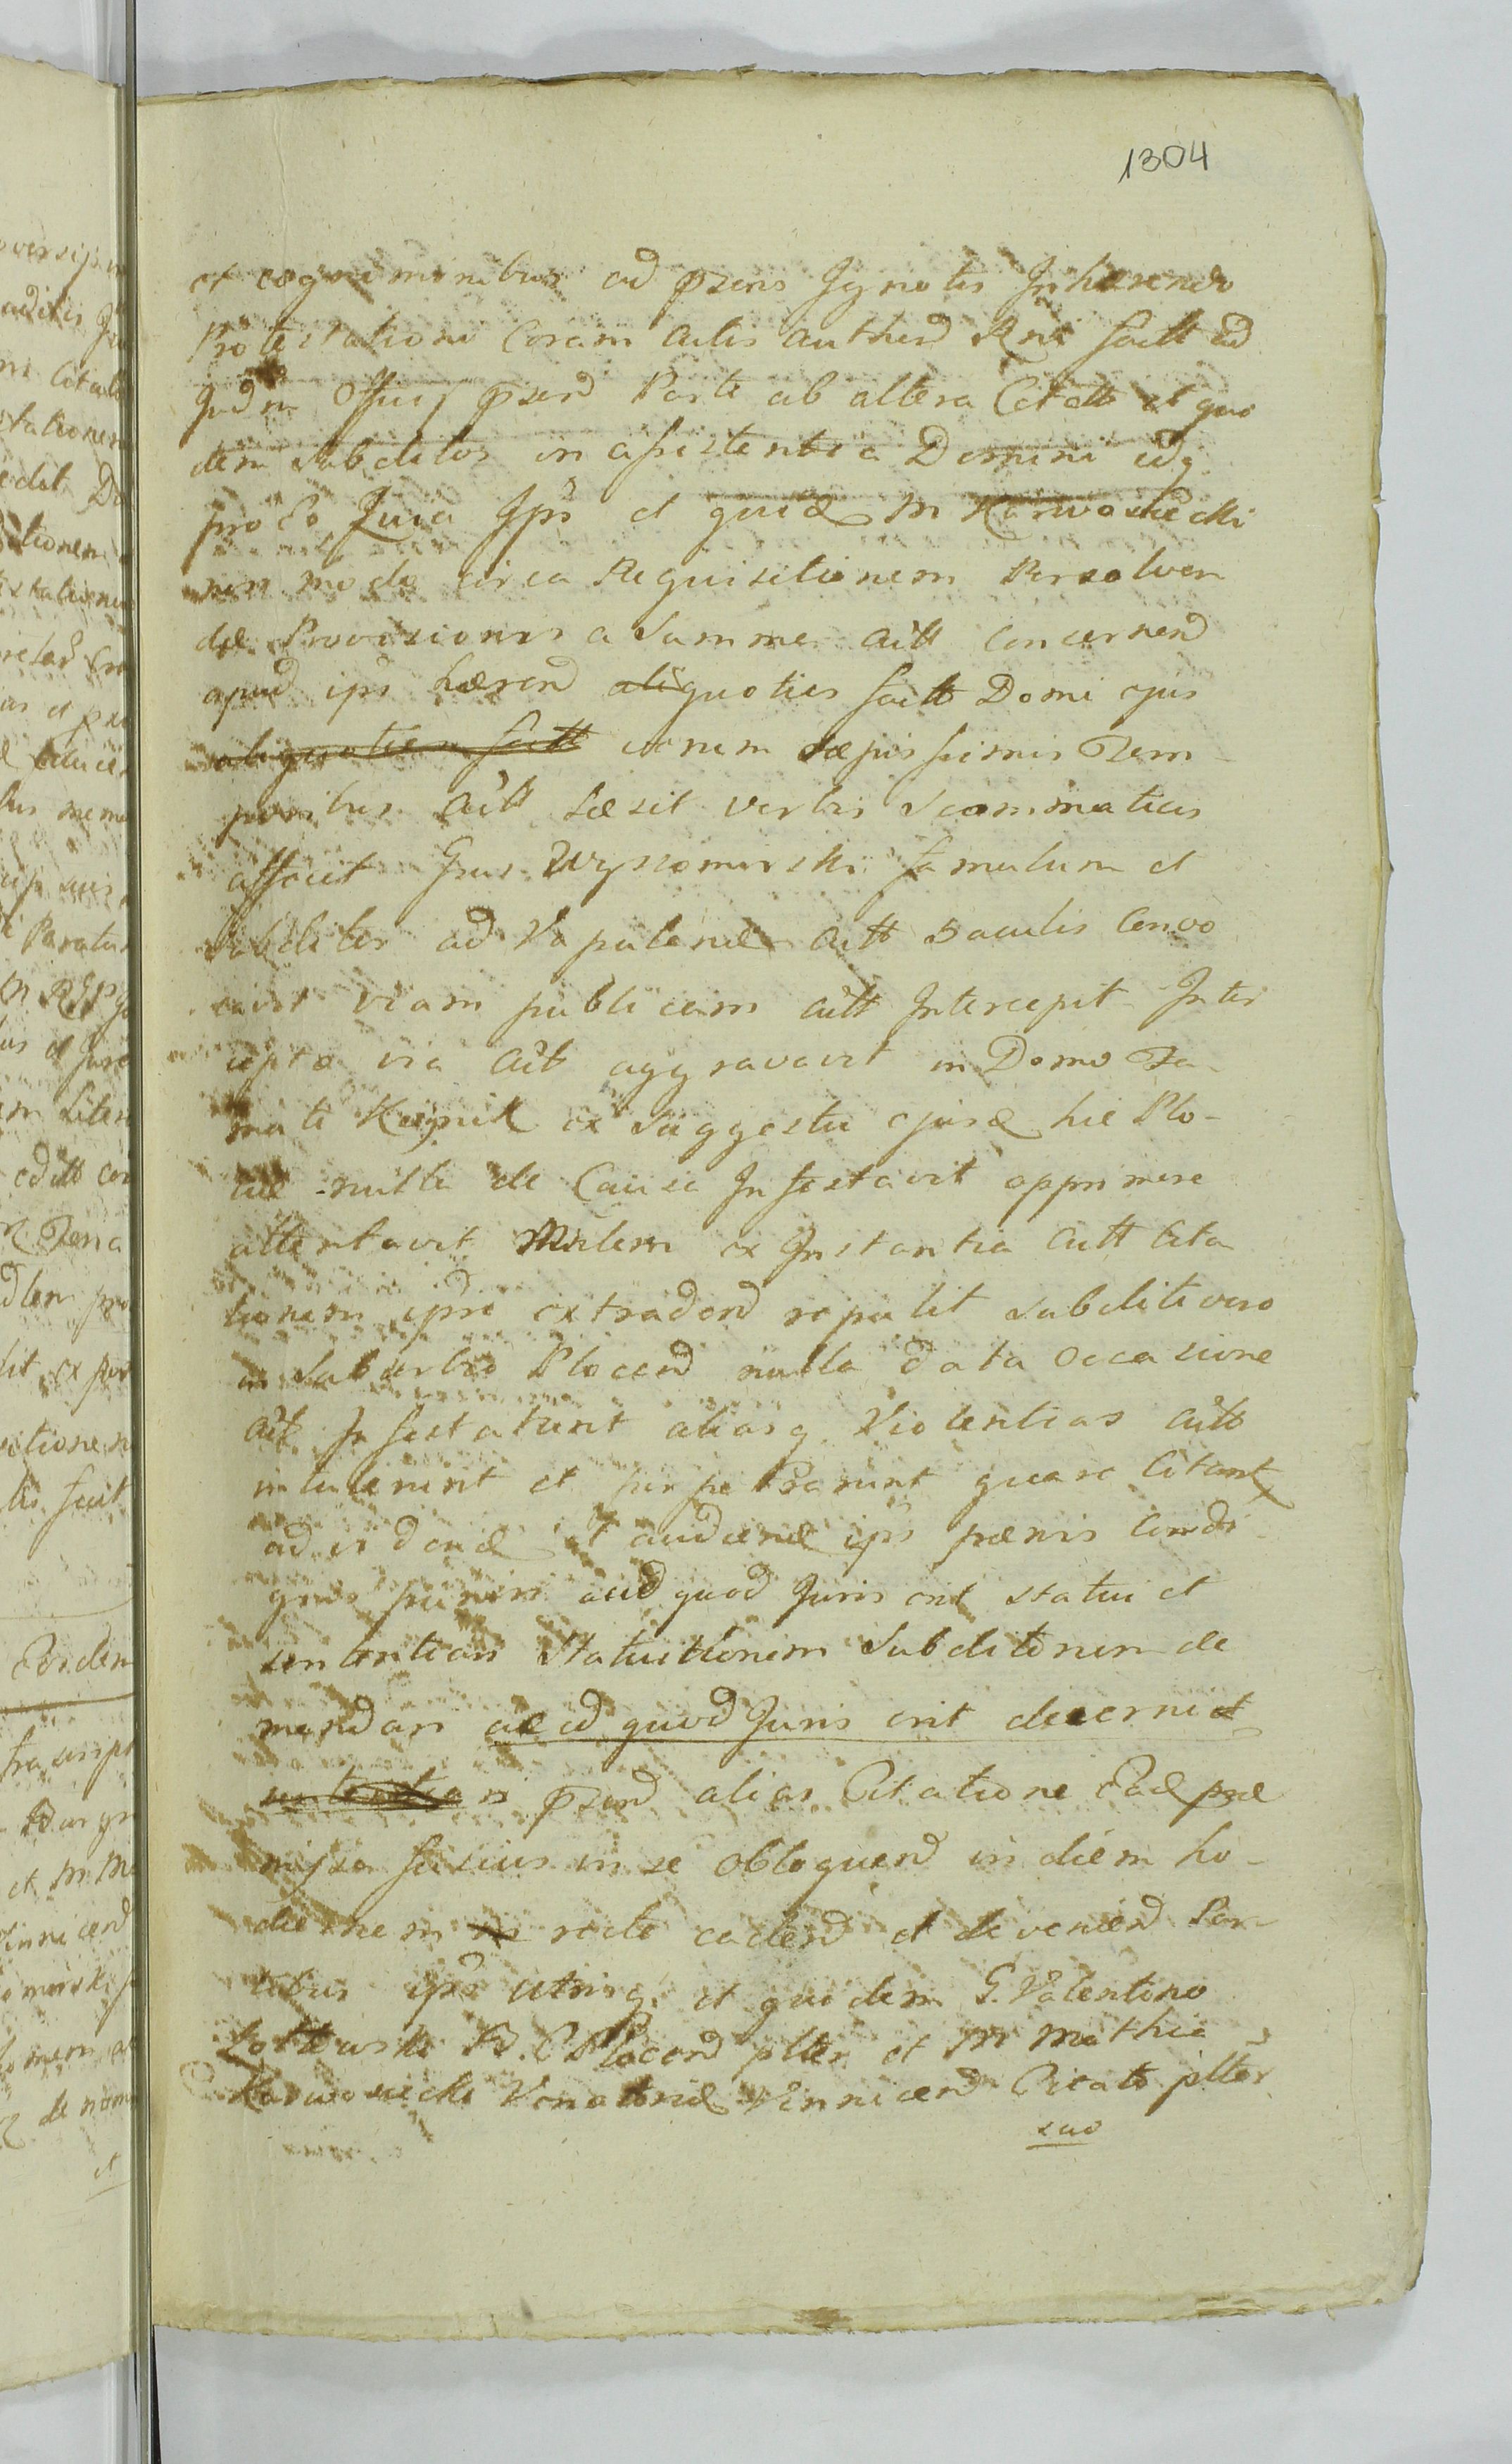 1304
et cognominibus ad przns Ignotis Inhærendo
Protestationi Coram Actis authend Rni factt ad
Judm Officij przend Parte ab altera Citatt et quo
dem subditos in assistentia Domini idq
pro eo Quia Ips et quid M Karwosiecki
non modo circa Requisitionem Persolven
dæ Provisionis a Summa Actt Concernend
apud ips hæren aliquoties factt Domi ejus
aliquoties factt verum sæpissimis Tem
poribus Actt Læsit verbis Scommaticis
affecit Gnus Wyszomirski famulum et
subditos ad Vapuland Actt baculis Convo
cavit viam publicam Actt Intercepit Inter
cepta via Actt aggravavit in Domo Fa
mati Kuynik ex Suggestu ejusd hic Plo-
ciæ nulla de Causa Infestavit opprimere
attentavit Mnlem ex Instantia Actt Cita
tionem ipsi extradend repulit subditi vero
in Suburbio Plocend nulla data Occasione
Actt Infestarunt aliasq Violentias Actt
intulerunt et perpetrarunt quare Citant
ad videnđ et audiend ips pænis Condi
gnis puniri aut quod Juris erit statui et
sententiari Statuitionem Subditorum de
mandari ac id quod Juris erit decerni et
sententiari przend alias Citatione Ead præ
missa fusius in se obloquend in diem ho-
diernam in recte cadend et deveniend Par
tibus ips utrisq. et quidem G. Valentino
B. C Plocend plter et M Mathia
Karwosiecki Venatorid Vinnicend Citato plter
suo